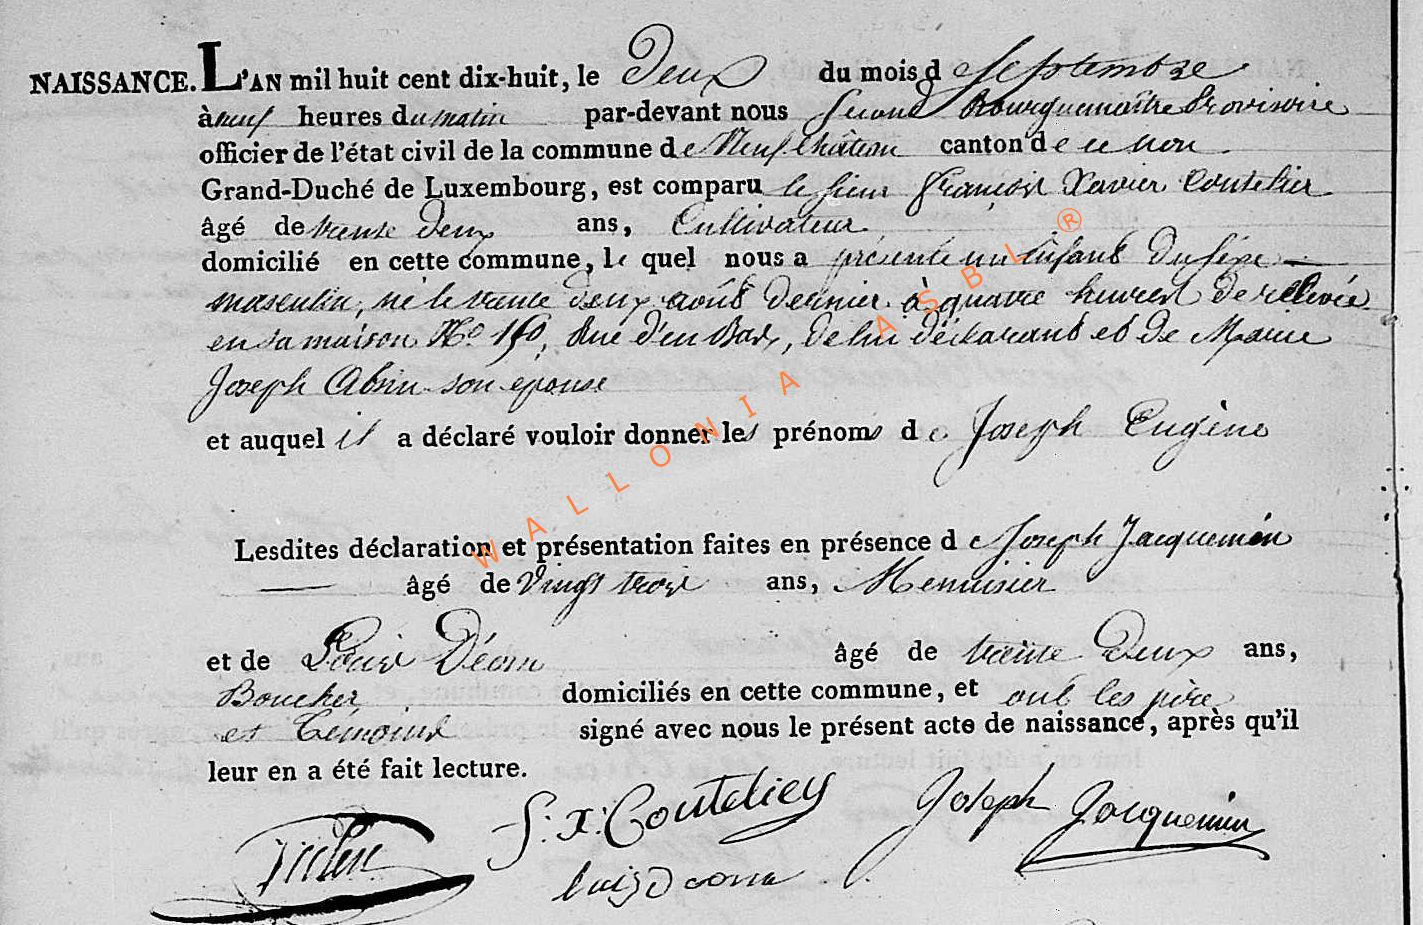 NAISSANCE. L'AN mil huit cent dix-huit, le Deux du mois de Septembre
à neuf heures du matin par-devant nous second Bourguemaître Provisoire
officier de l'état civil de la commune de Neufchâteau canton de ce nom
Grand-Duché de Luxembourg, est comparu le sieur François Xavier Coutelier
âgé de trente deux ans, Cultivateur
domicilié en cette commune, le quel nous a présenté un Enfant du séxe
masculin, né le trente deux août dernier à quatre heures de relevée
en sa maison No 150, Rue d'en Bas, de lui déclarant et de Marie
Joseph son epouse
et auquel il a déclaré vouloir donner les prénoms de Joseph Eugène
Lesdites déclaration et présentation faites en présence de Joseph Jacquemin
âgé de Vingt trois ans, Menuisier
et de Louis Déom âgé de trente Deux ans,
Boucher domiciliés en cette commune, et ont les père
et Témoins signé avec nous le présent acte de naissance, après qu'il
leur en a été fait lecture.
f: x: Coutelier Joseph Jacquemin
WALLONIA ASBL ®